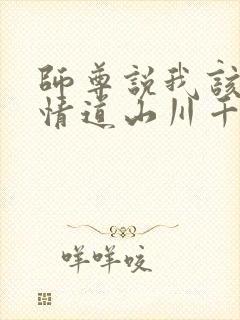 師尊說我該
情道山川千
咩咩咬